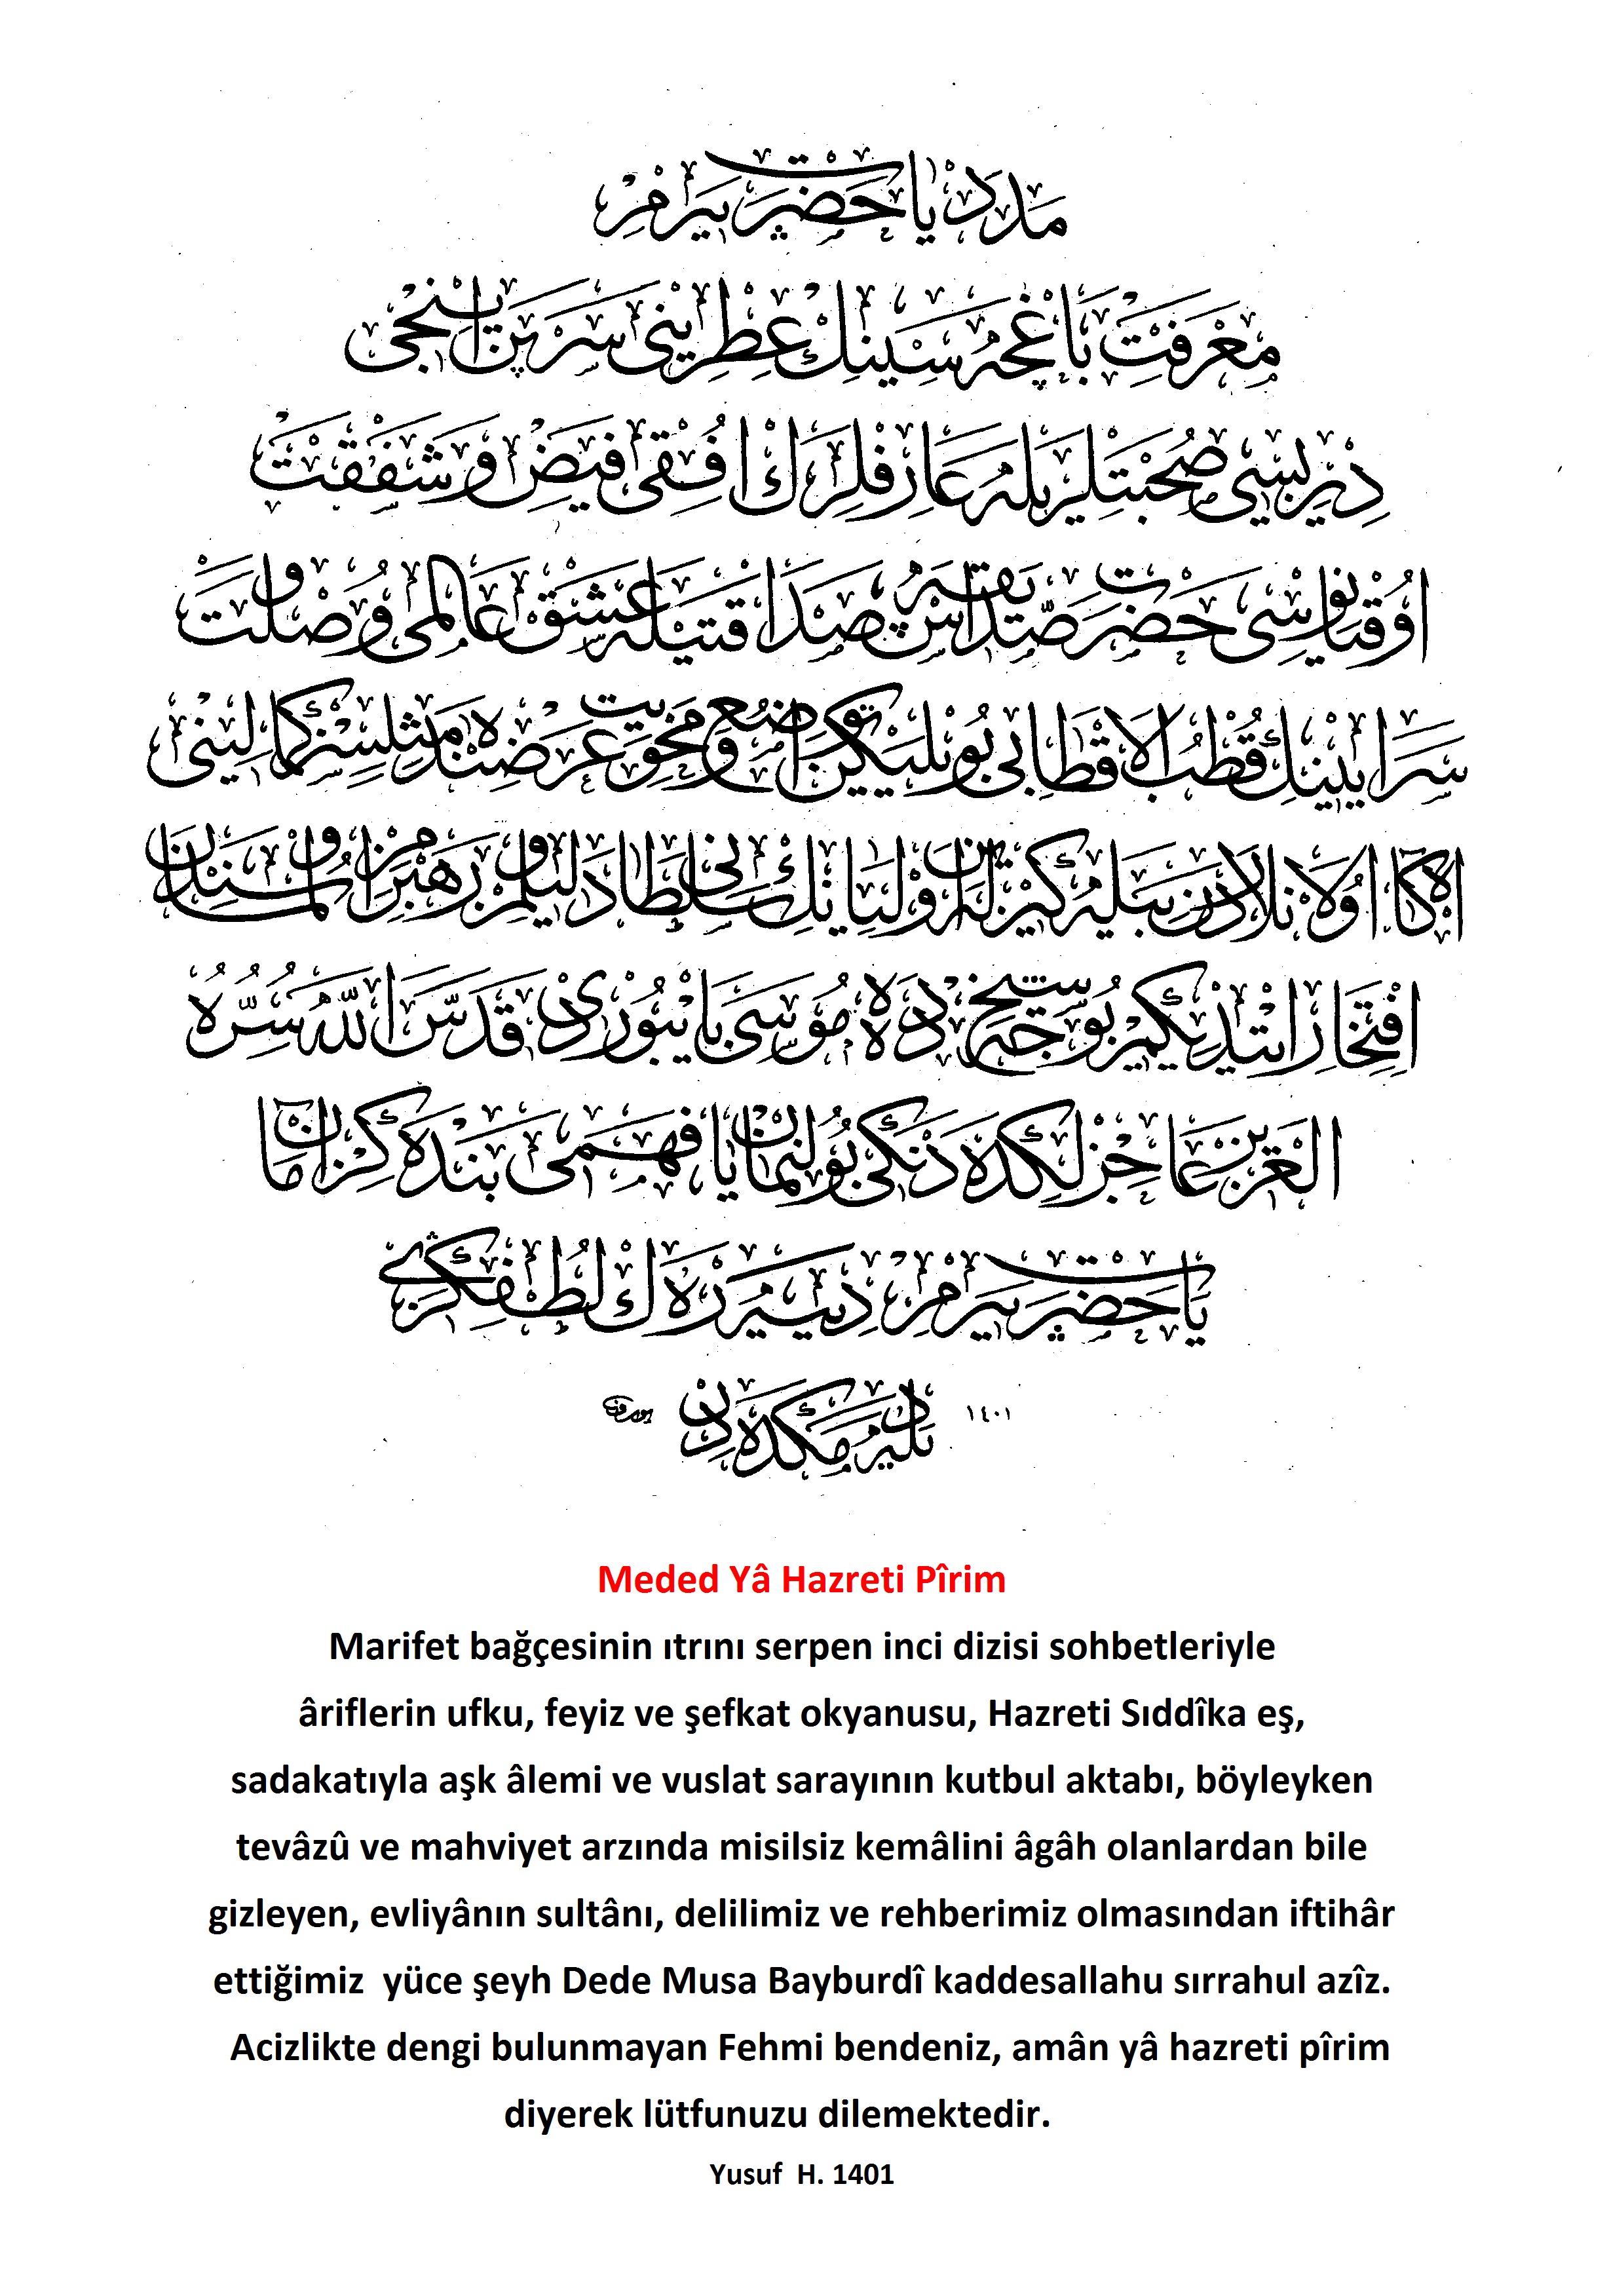 مدد يا حضرت پيرم
معرفت باغچه سينك عطرينى سرپن اينجى
ديزيسى صحبتلريله عارفلرك افقى فيض و شفقت
اوقيانوسى حضرت صديقه اش صداقتيله عشق عالمى و وصلت
سراينيك قطب الاقطابى بويليكن تواضع و محويت عرضنده مثلسز كمالينى
آكاه اولانلاردن بيله كيزلەين اوليانك سلطانى دليلمز و رهبرمز اولماسندن
افتخار ايتديكيمز يوجه شيخ دده موسى بايبوردى قدس الله سره
العزيز عاجزلكده دنكى بولنمايان فهمى بندەكز امان
يا حضرت پيرم دييەرك لطفكزى
ديلەمكدەدر
١٤٠١
يوسف
Meded Yâ Hazreti Pîrim
Marifet bağçesinin ıtrını serpen inci dizisi sohbetleriyle
âriflerin ufku, feyiz ve şefkat okyanusu, Hazreti Sıddîka eş,
sadakatıyla aşk âlemi ve vuslat sarayının kutbul aktabı, böyleyken
tevâzû ve mahviyet arzında misilsiz kemâlini âgâh olanlardan bile
gizleyen, evliyânın sultânı, delilimiz ve rehberimiz olmasından iftihâr
ettiğimiz yüce şeyh Dede Musa Bayburdî kaddesallahu sırrahul azîz.
Acizlikte dengi bulunmayan Fehmi bendeniz, amân yâ hazreti pîrim
diyerek lütfunuzu dilemektedir.
Yusuf H. 1401